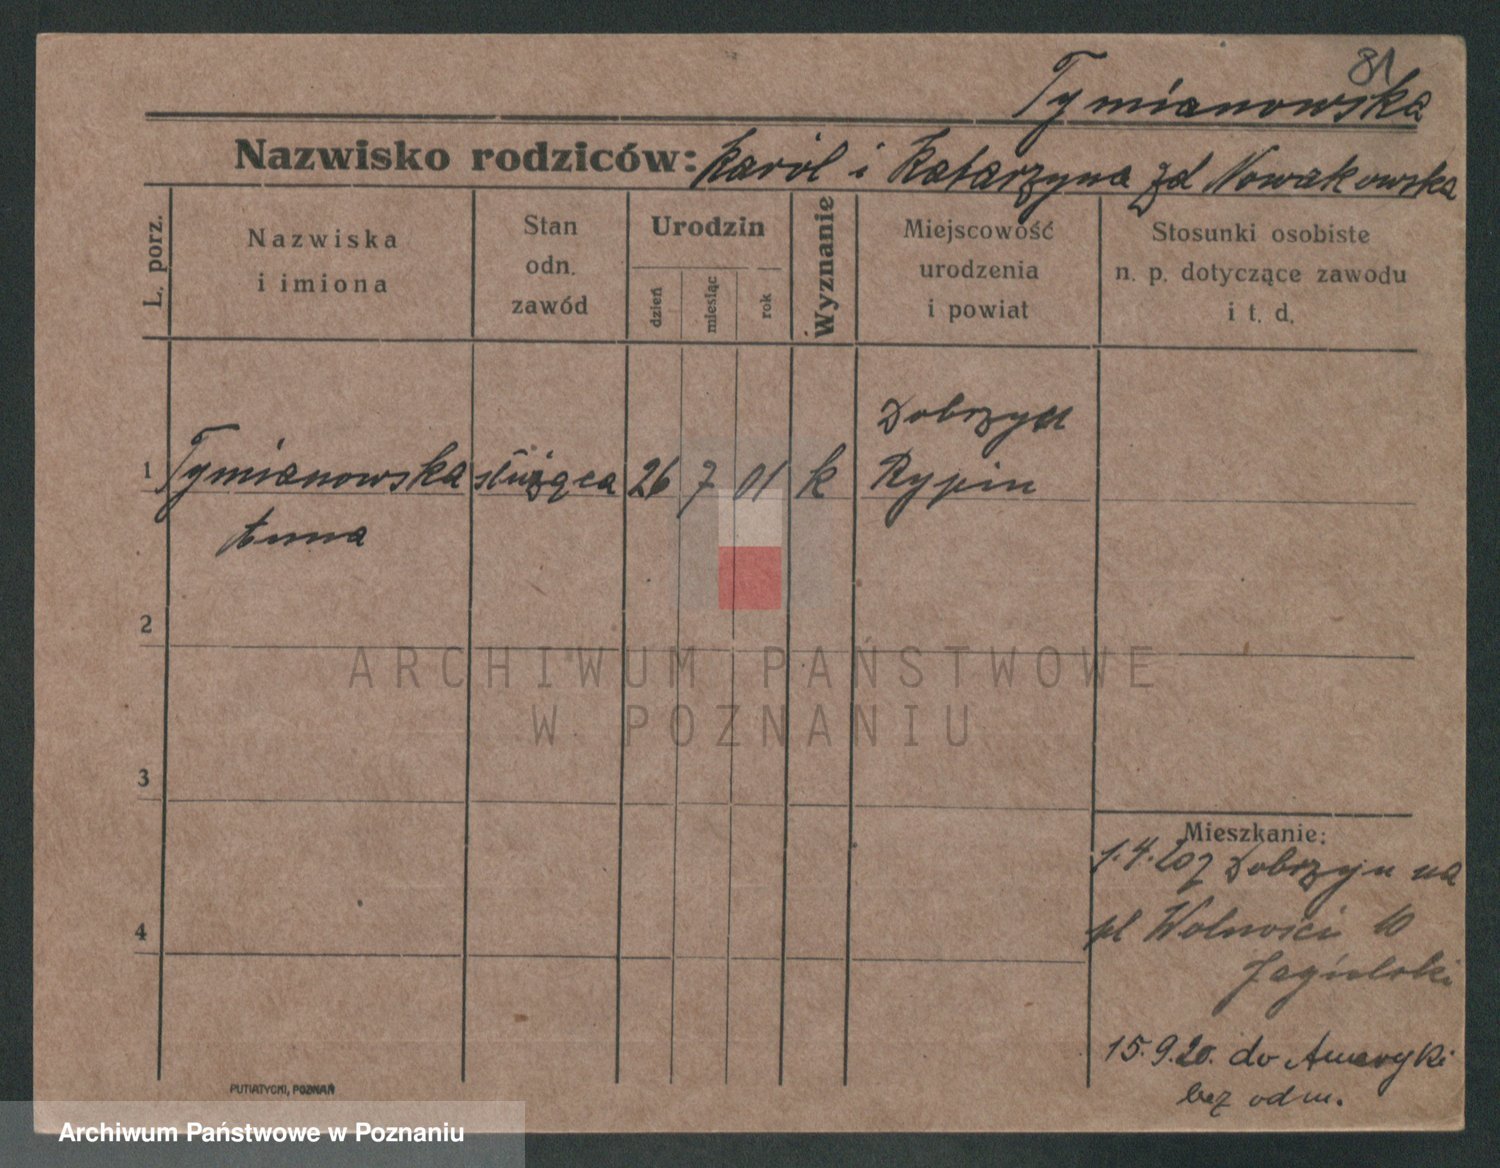 81
Tymianowska
Nazwisko rodziców: Karol i Katarzyna zd Nowakowska
L. porz.
Nazwiska
i imiona
Stan
odn.
zawód
Urodzin
dzień
miesiąc
rok
Wyznanie
Miejscowość
urodzenia
i powiat
Stosunki osobiste
n. p. dotyczące zawodu
i t. d.
Dobrzyń
1 Tymianowska służąca 26 7 01 k Rypin
Anna
2
ARCHIWUM PAŃSTWOWE
W POZNANIU
3
Mieszkanie:
1.4.20 z Dobrzyn na
4
pl Wolności 10
Jagielski
15.9.20. do Ameryki
bez odm.
PUTIATYCKI, POZNAŃ
Archiwum Państwowe w Poznaniu